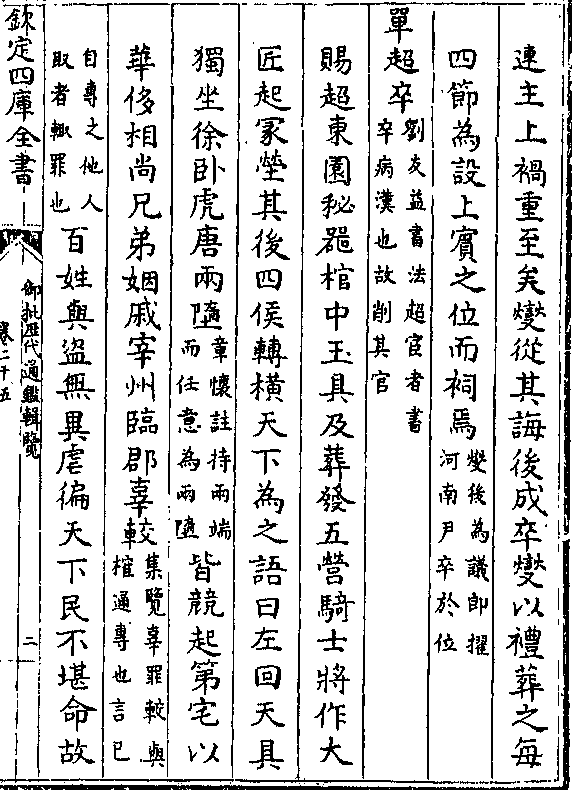 連主上禍重至矣燮從其誨後成卒燮以禮葬之每
四節為設上賓之位而祠焉燮後為議郎擢河南尹卒於位
單超卒劉友益書法超宦者書卒病漢也故削其官
賜超東園秘器棺中玉具及葬發五營騎士將作大
匠起冢塋其後四侯轉橫天下為之語曰左回天具
獨坐徐卧虎唐兩墮章懷註持兩端而任意為兩墮皆競起第宅以
華侈相尚兄弟姻戚宰州臨郡辜較集覽辜罪較與榷通專也言已
自專之他人取者輙罪也百姓與盜無異虐徧天下民不堪命故
欽定四庫全書
御批歷代通鑑輯覽
卷二十五
二